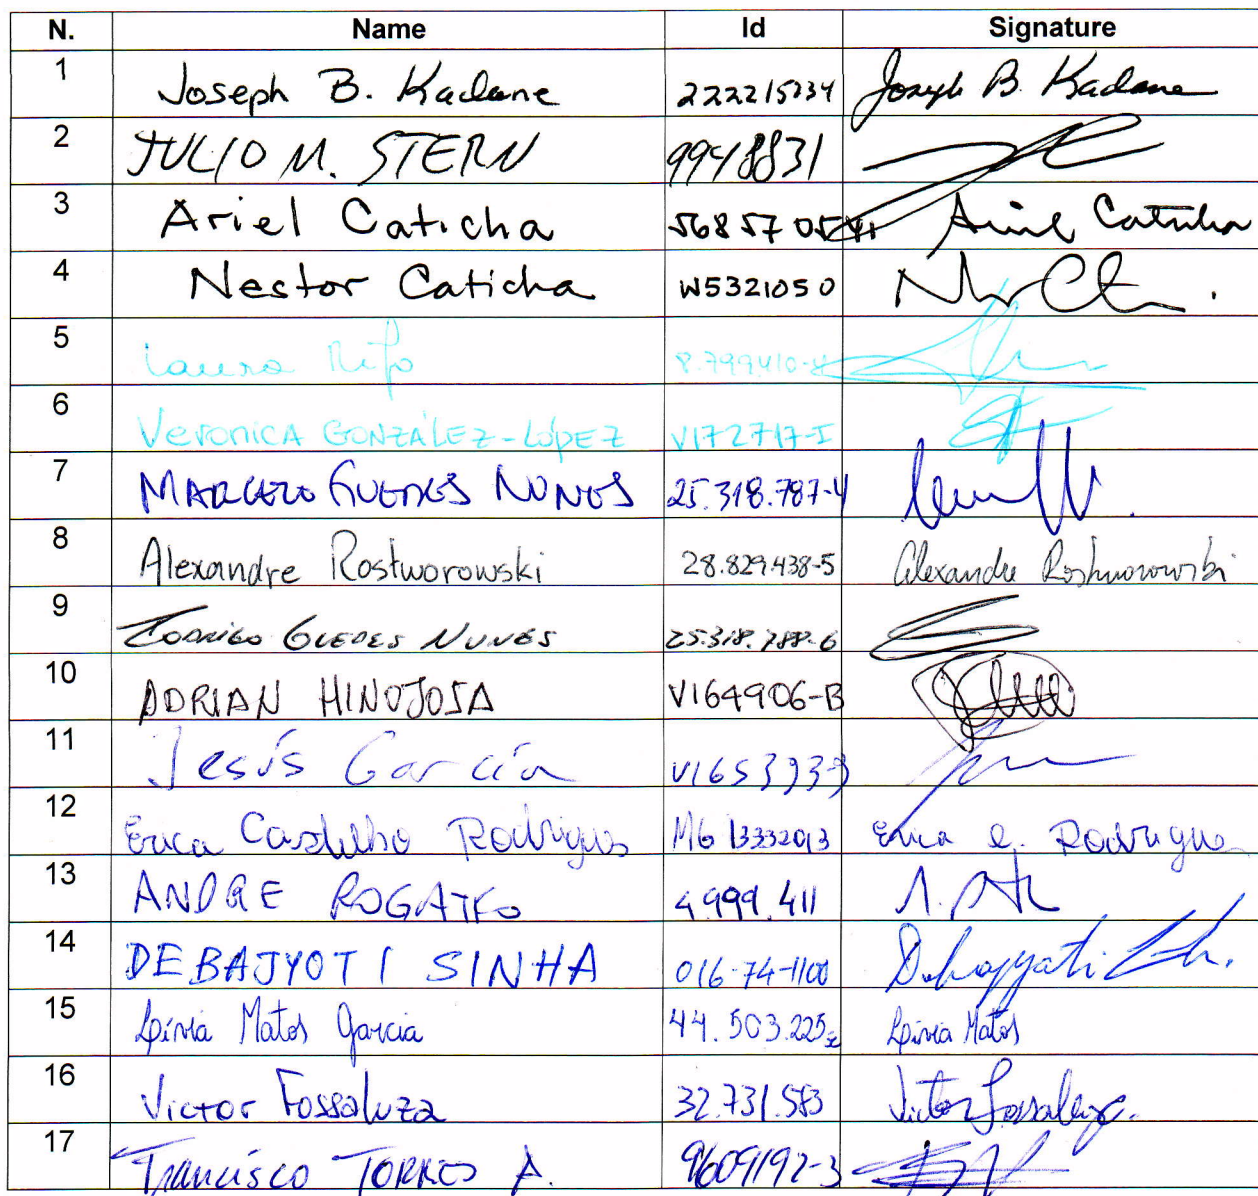 N. Name Id Signature
1 Joseph B. Kadane 222215234 Joseph B. Kadane
2 JULIO M. STERN 9948831
3 Ariel Caticha Ariel Caticha
4 Nestor Caticha W5321050
5 Laura Rifo
6 VERONICA GONZÁLEZ-LÓPEZ V172717-I
7 MARCELO GUEDES NUNES 25.318.787-4
8 Alexandre Rostworowski 28.829.438-5 Alexandre Rostworowski
9 RODRIGO GUEDES NUNES 25.318.788-6
10 ADRIAN HINOJOSA V164906-B
11 Jesús García
12 Erica Castilho Rodrigues MG 13332013 Erica C. Rodrigues
13 ANDRE ROGATKO 4.999.411
14 DEBAJYOTI SINHA 016-74-1100
15 Lívia Matos Garcia 44.503.225 Lívia Matos
16 Victor Fossaluza 32.731.583 Victor Fossaluza
17 Francisco TORRES A. 9609192-3